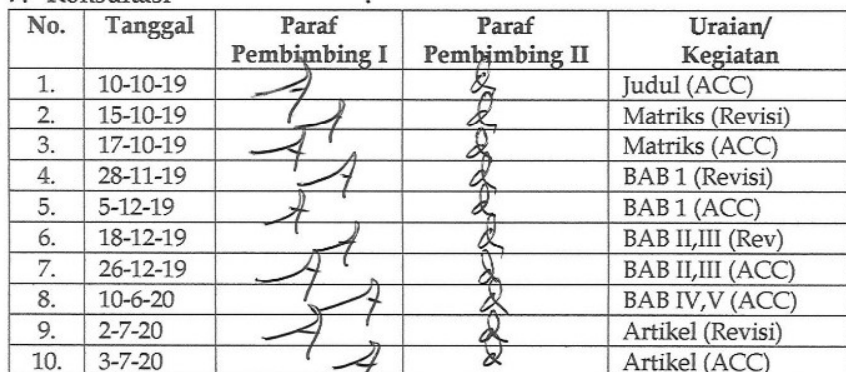 No. Tanggal Paraf Pembimbing I Paraf Pembimbing II Uraian/ Kegiatan
1. 10-10-19 Judul (ACC)
2. 15-10-19 Matriks (Revisi)
3. 17-10-19 Matriks (ACC)
4. 28-11-19 BAB 1 (Revisi)
5. 5-12-19 BAB 1 (ACC)
6. 18-12-19 BAB II,III (Rev)
7. 26-12-19 BAB II,III (ACC)
8. 10-6-20 BAB IV,V (ACC)
9. 2-7-20 Artikel (Revisi)
10. 3-7-20 Artikel (ACC)